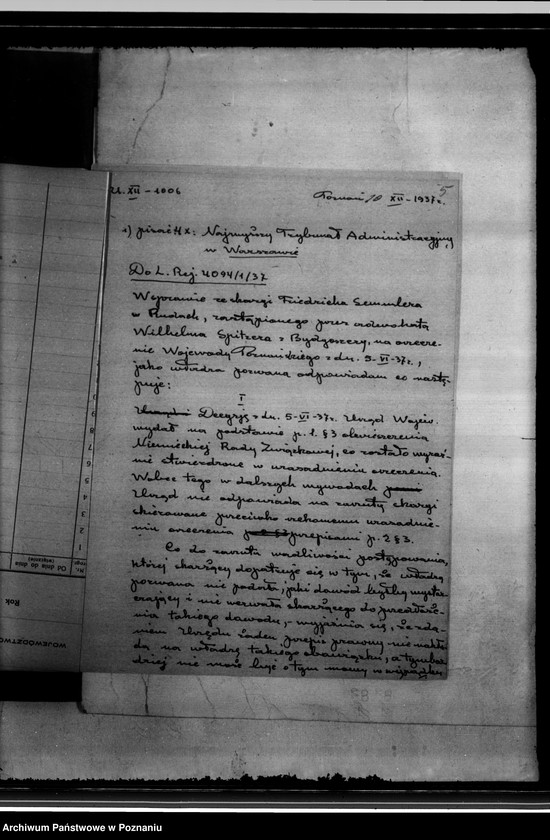 21. XII - 1006
Poznań 10 XII - 1937 r.
5
1) pisać HX: Najwyższy Trybunał Administracyjny
w Warszawie
Do L. Rej. 4094/1/37
W sprawie ze skargi Friedricha Semmlera
w Rudach, zastąpionego przez adwokata
Wilhelma Spitzera z Bydgoszczy, na orzecze-
nie Wojewody Poznańskiego z dn. 5-VI-37r.,
jako władza pozwana odpowiadam co nastę-
puje:
I
Decyzję z dn. 5-VI-37r. Urząd Wojew.
wydał na podstawie p. 1. § 3 obwieszczenia
Niemieckiej Rady Związkowej, co zostało wyraź-
nie stwierdzone w uzasadnieniu orzeczenia.
Wobec tego w dalszych wywodach
Urząd nie odpowiada na zarzuty skargi
skierowane przeciwko rzekomemu uzasadnie-
niu orzeczenia przepisami p. 2 § 3.
Co do zarzutu wadliwości postępowania,
której skarżący dopatruje się w tym, że władza
pozwana nie podała, jaki dowód byłby wystar-
czający i nie wezwała skarżącego do przedłoże-
nia takiego dowodu, - wyjaśnia się, że zda-
niem Urzędu żaden przepis prawny nie nakła-
da na władzę takiego obowiązku, a tym bar-
dziej nie może być o tym mowy w wypadku
Nr.
Od dnia do dnia
(włącznie)
Rok
WOJEWÓDZTWO
1
2
3
4
5
6
7
8
9
Archiwum Państwowe w Poznaniu